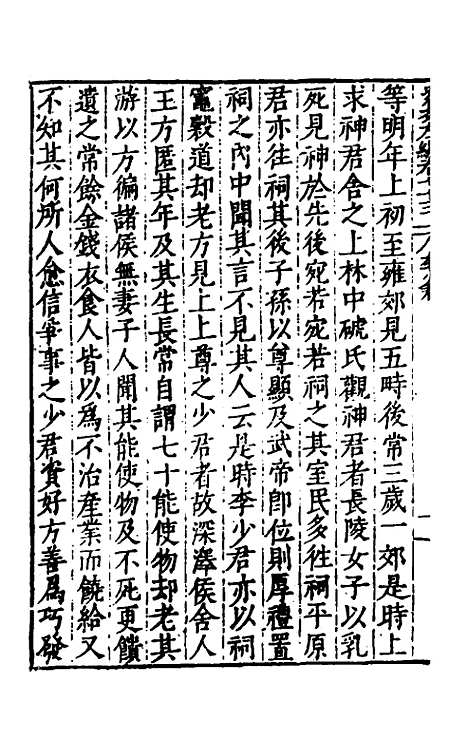 等明年上初至雍郊見五畤後常三歲一郊是時上
求神君舍之上林中磃氏觀神君者長陵女子以乳
死見神於先後宛若宛若祠之其室民多徃祠平原
君亦往祠其後子孫以尊顯及武帝卽位則厚禮置
祠之內中聞其言不見其人云是時李少君亦以祠
竈穀道却老方見上上尊之少君者故深澤侯舍人
王方匿其年及其生長常自謂七十能使物却老其
游以方徧諸侯無妻子人聞其能使物及不死更饋
遺之常餘金錢衣食人皆以爲不治產業而饒給又
不知其何所人愈信爭事之少君資好方善爲巧發